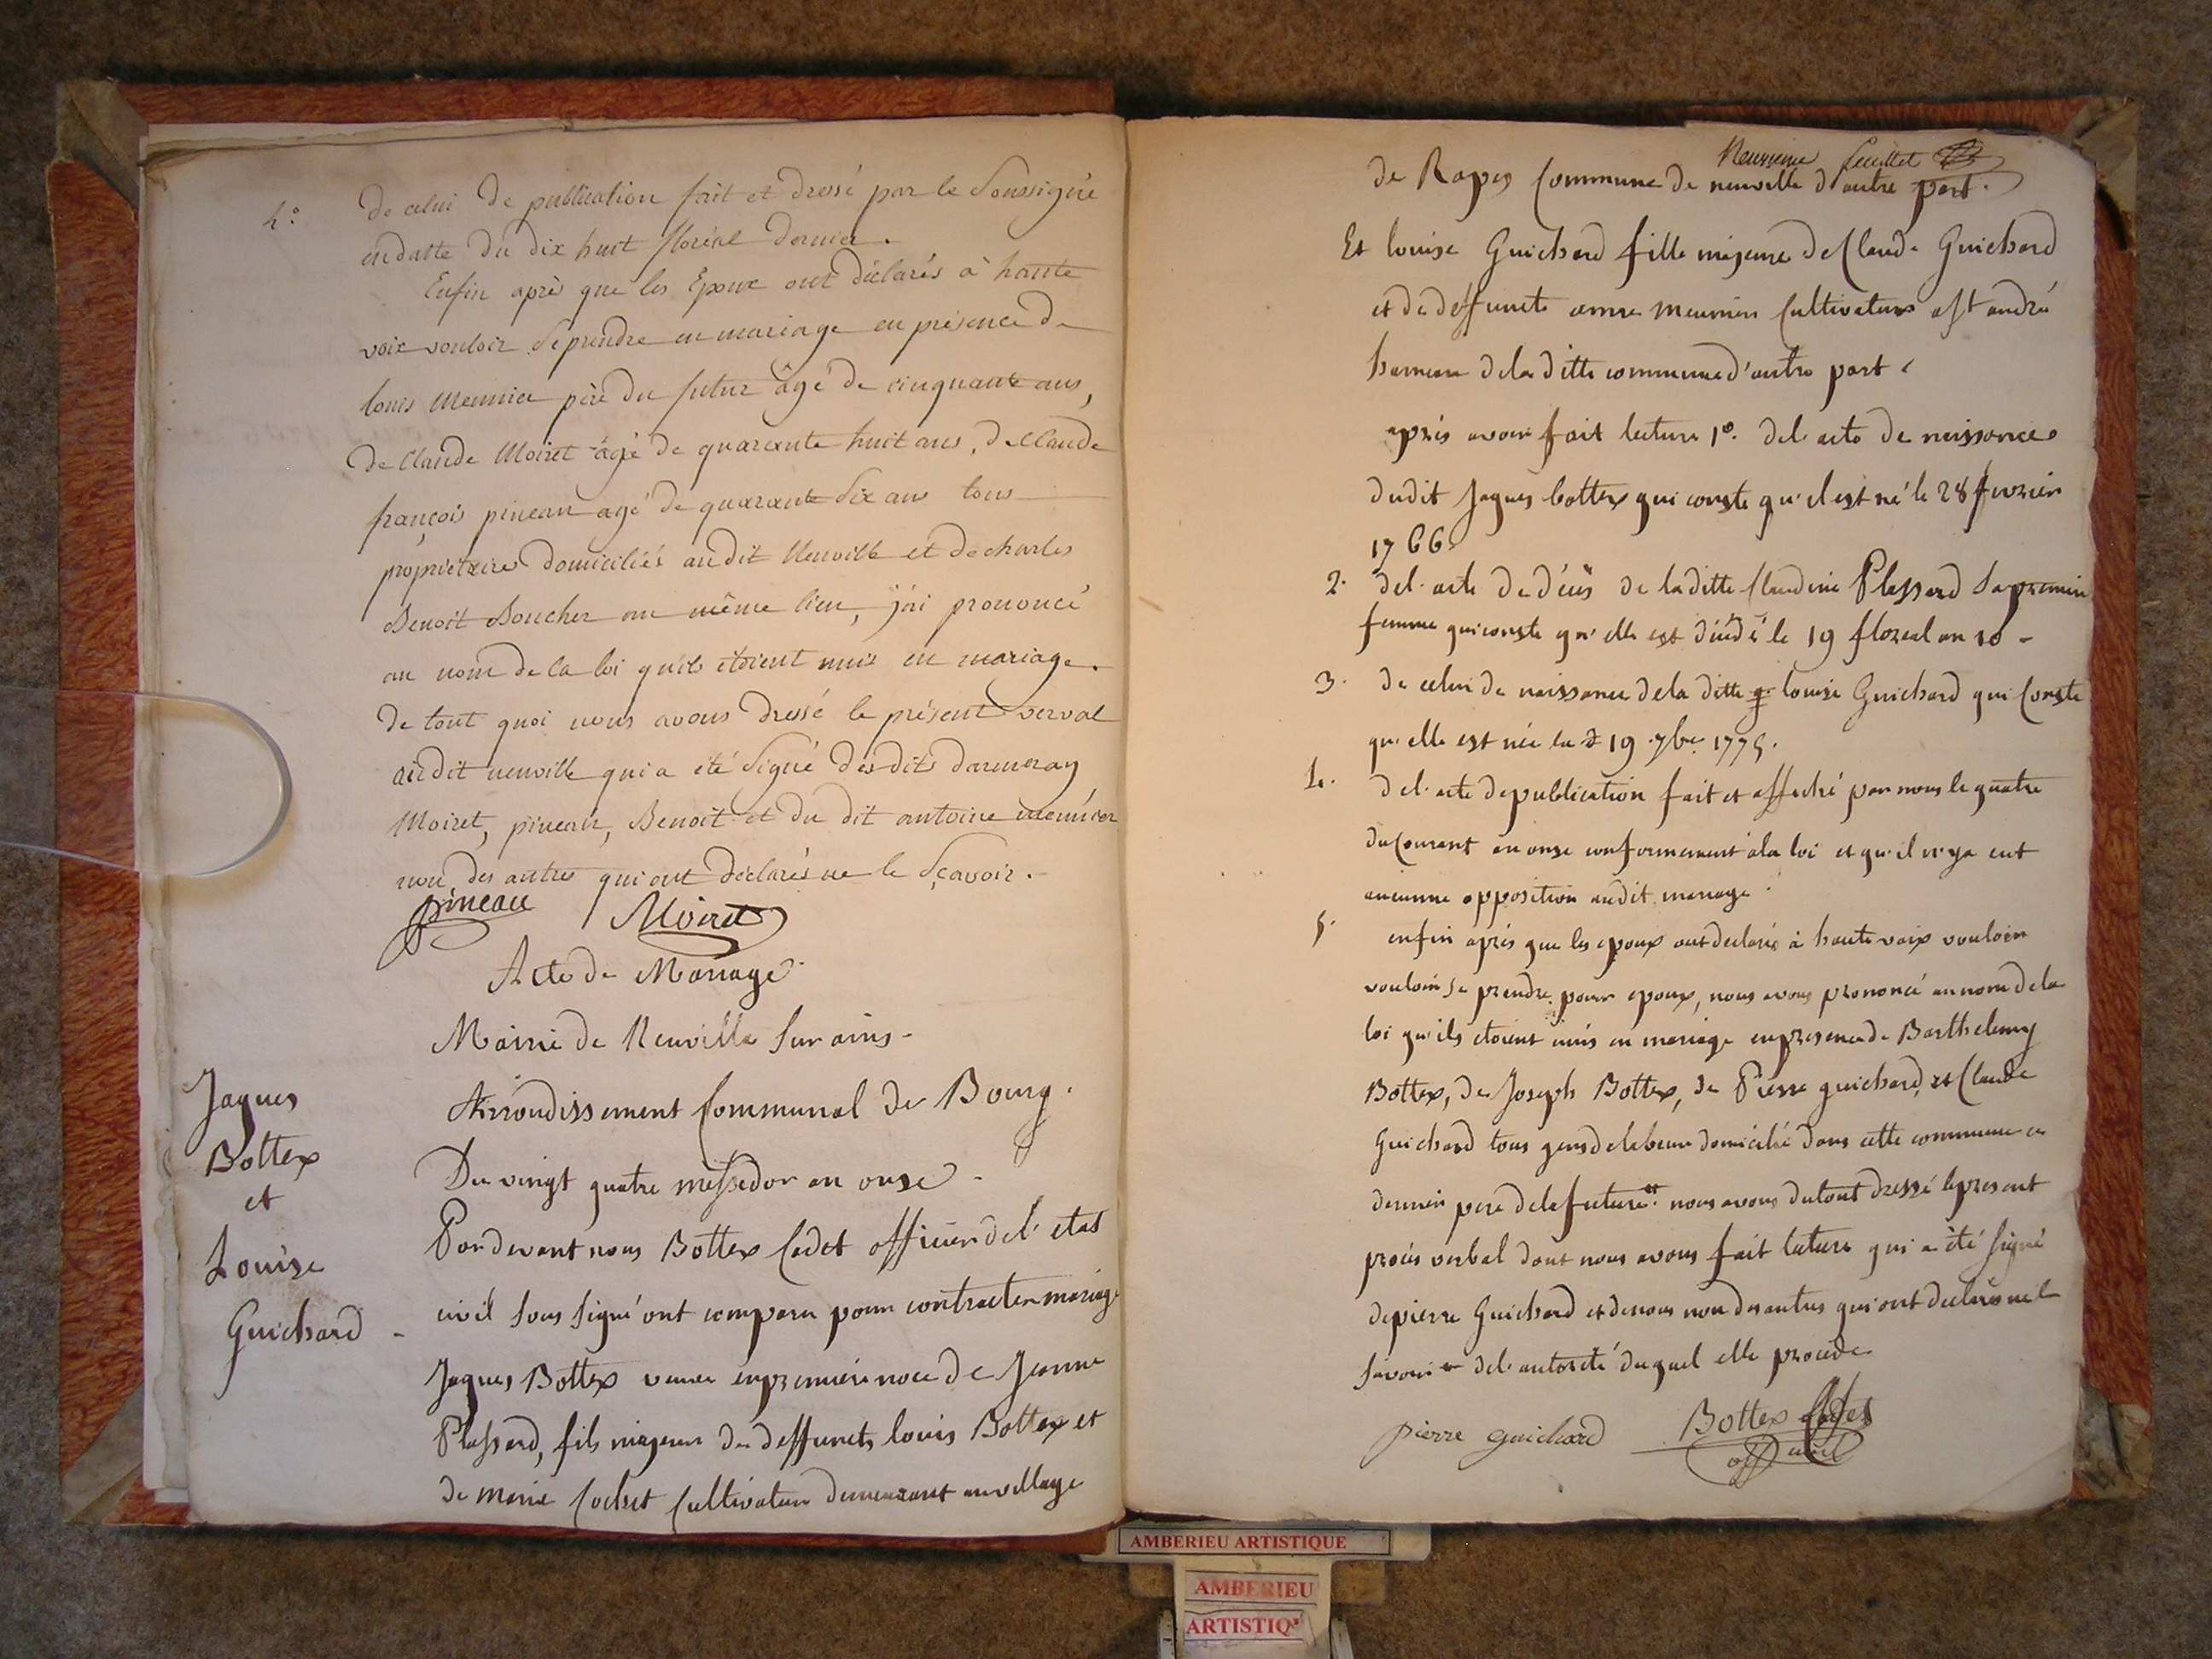 4.° de celui de publication fait et dressé par le Soussigné
en datte du dix huit floréal dernier.
Enfin après que les Epoux ont déclarés à haute
voix vouloir se prendre en mariage en présence de
louis Meunier père du futur âgé de cinquante ans,
de Claude Moiret âgé de quarante huit ans, de Claude
françois pineau agé de quarante six ans tous
propriétaires domiciliés audit Neuville et de charles
Benoit Boucher au même lieu, j'ai prononcé
au nom de la loi qu'ils étoient unis en mariage.
de tout quoi nous avons dressé le présent verval
audit neuville qui a été signé des dits
Moiret, pineau, Benoit et du dit antoine meunier
non des autres qui ont déclarés ne le sçavoir.
pineau Moiret
Acte de Mariage
Mairie de Neuville sur ains
Arrondissement Communal de Bourg.
Du vingt quatre messidor an onse
Jaques
Bottex
et
Louise
Guichard
Pardevant nous Bottex Cadet officier del'etat
civil sous signé ont comparu pour contracter mariage
Jaques Bottex veuve en premiere noce de Jeanne
Plassard, fils majeur de deffuncts louis Bottex et
de marie Cochet Cultivateur demeurant au village
Neuvieme feuillet
de Rapes Commune de neuville d'autre part.
Et louise Guichard fille majeure de Claude Guichard
et de deffuncte anne meunier Cultivateurs a st andré
hameau dela ditte commune d'autre part
après avoir fait lecture 1°. del'acte de naissance
dudit Jaques bottex qui conste qu'il est né le 28 fevrier
1766.
2. del'acte de décès de laditte Claudine Plassard sa premier
femme qui conste qu'elle est décédé le 19 floreal an 10 -
3. de celui de naissance dela ditte louise Guichard qui Conste
qu'elle est née le 19 7bre 1775.
4. del'acte de publication fait et affiché par nous le quatre
du Courant an onse conformement à la loi et qu'il n'ya eut
aucunne opposition audit mariage.
5. enfin après que les epoux ont declaré à haute voix vouloir
vouloir se prendre pour epoux, nous avons prononcé au nom dela
loi qu'ils etoient unis en mariage en presence de Barthelemy
Bottex, de Joseph Bottex, de Pierre guichard, et Claude
Guichard tous gens de labeur domicilié dans cette commune ce
dernier pere dela future nous avons du tout dressé le present
procès verbal dont nous avons fait lecture qui a été signé
de pierre Guichard et de nous non des autres qui ont declarés ne le
savoir del'autorité duquel elle procede
pierre guichard Bottex Cadet
off civil
AMBERIEU ARTISTIQUE
AMBERIEU
ARTISTIQ